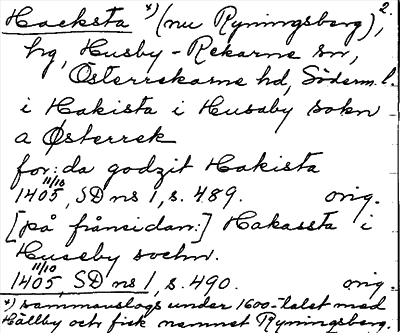 Hacksta *) (nu Ryningsberg), 2.
hg, Husby-Rekarne sn,
Österrekarne hd, Söderm. l.
i Hakista i Husaby sokn
a Østerrek
for:da godzit Hakista
1405 11/10, SD ns 1, s. 489. orig.
[på frånsidan:] Hakassta i
Huseby sochn.
1405 11/10, SD ns 1, s. 490. orig.
*) sammanslogs under 1600-talet med
Hällby och fick namnet Ryningsberg.